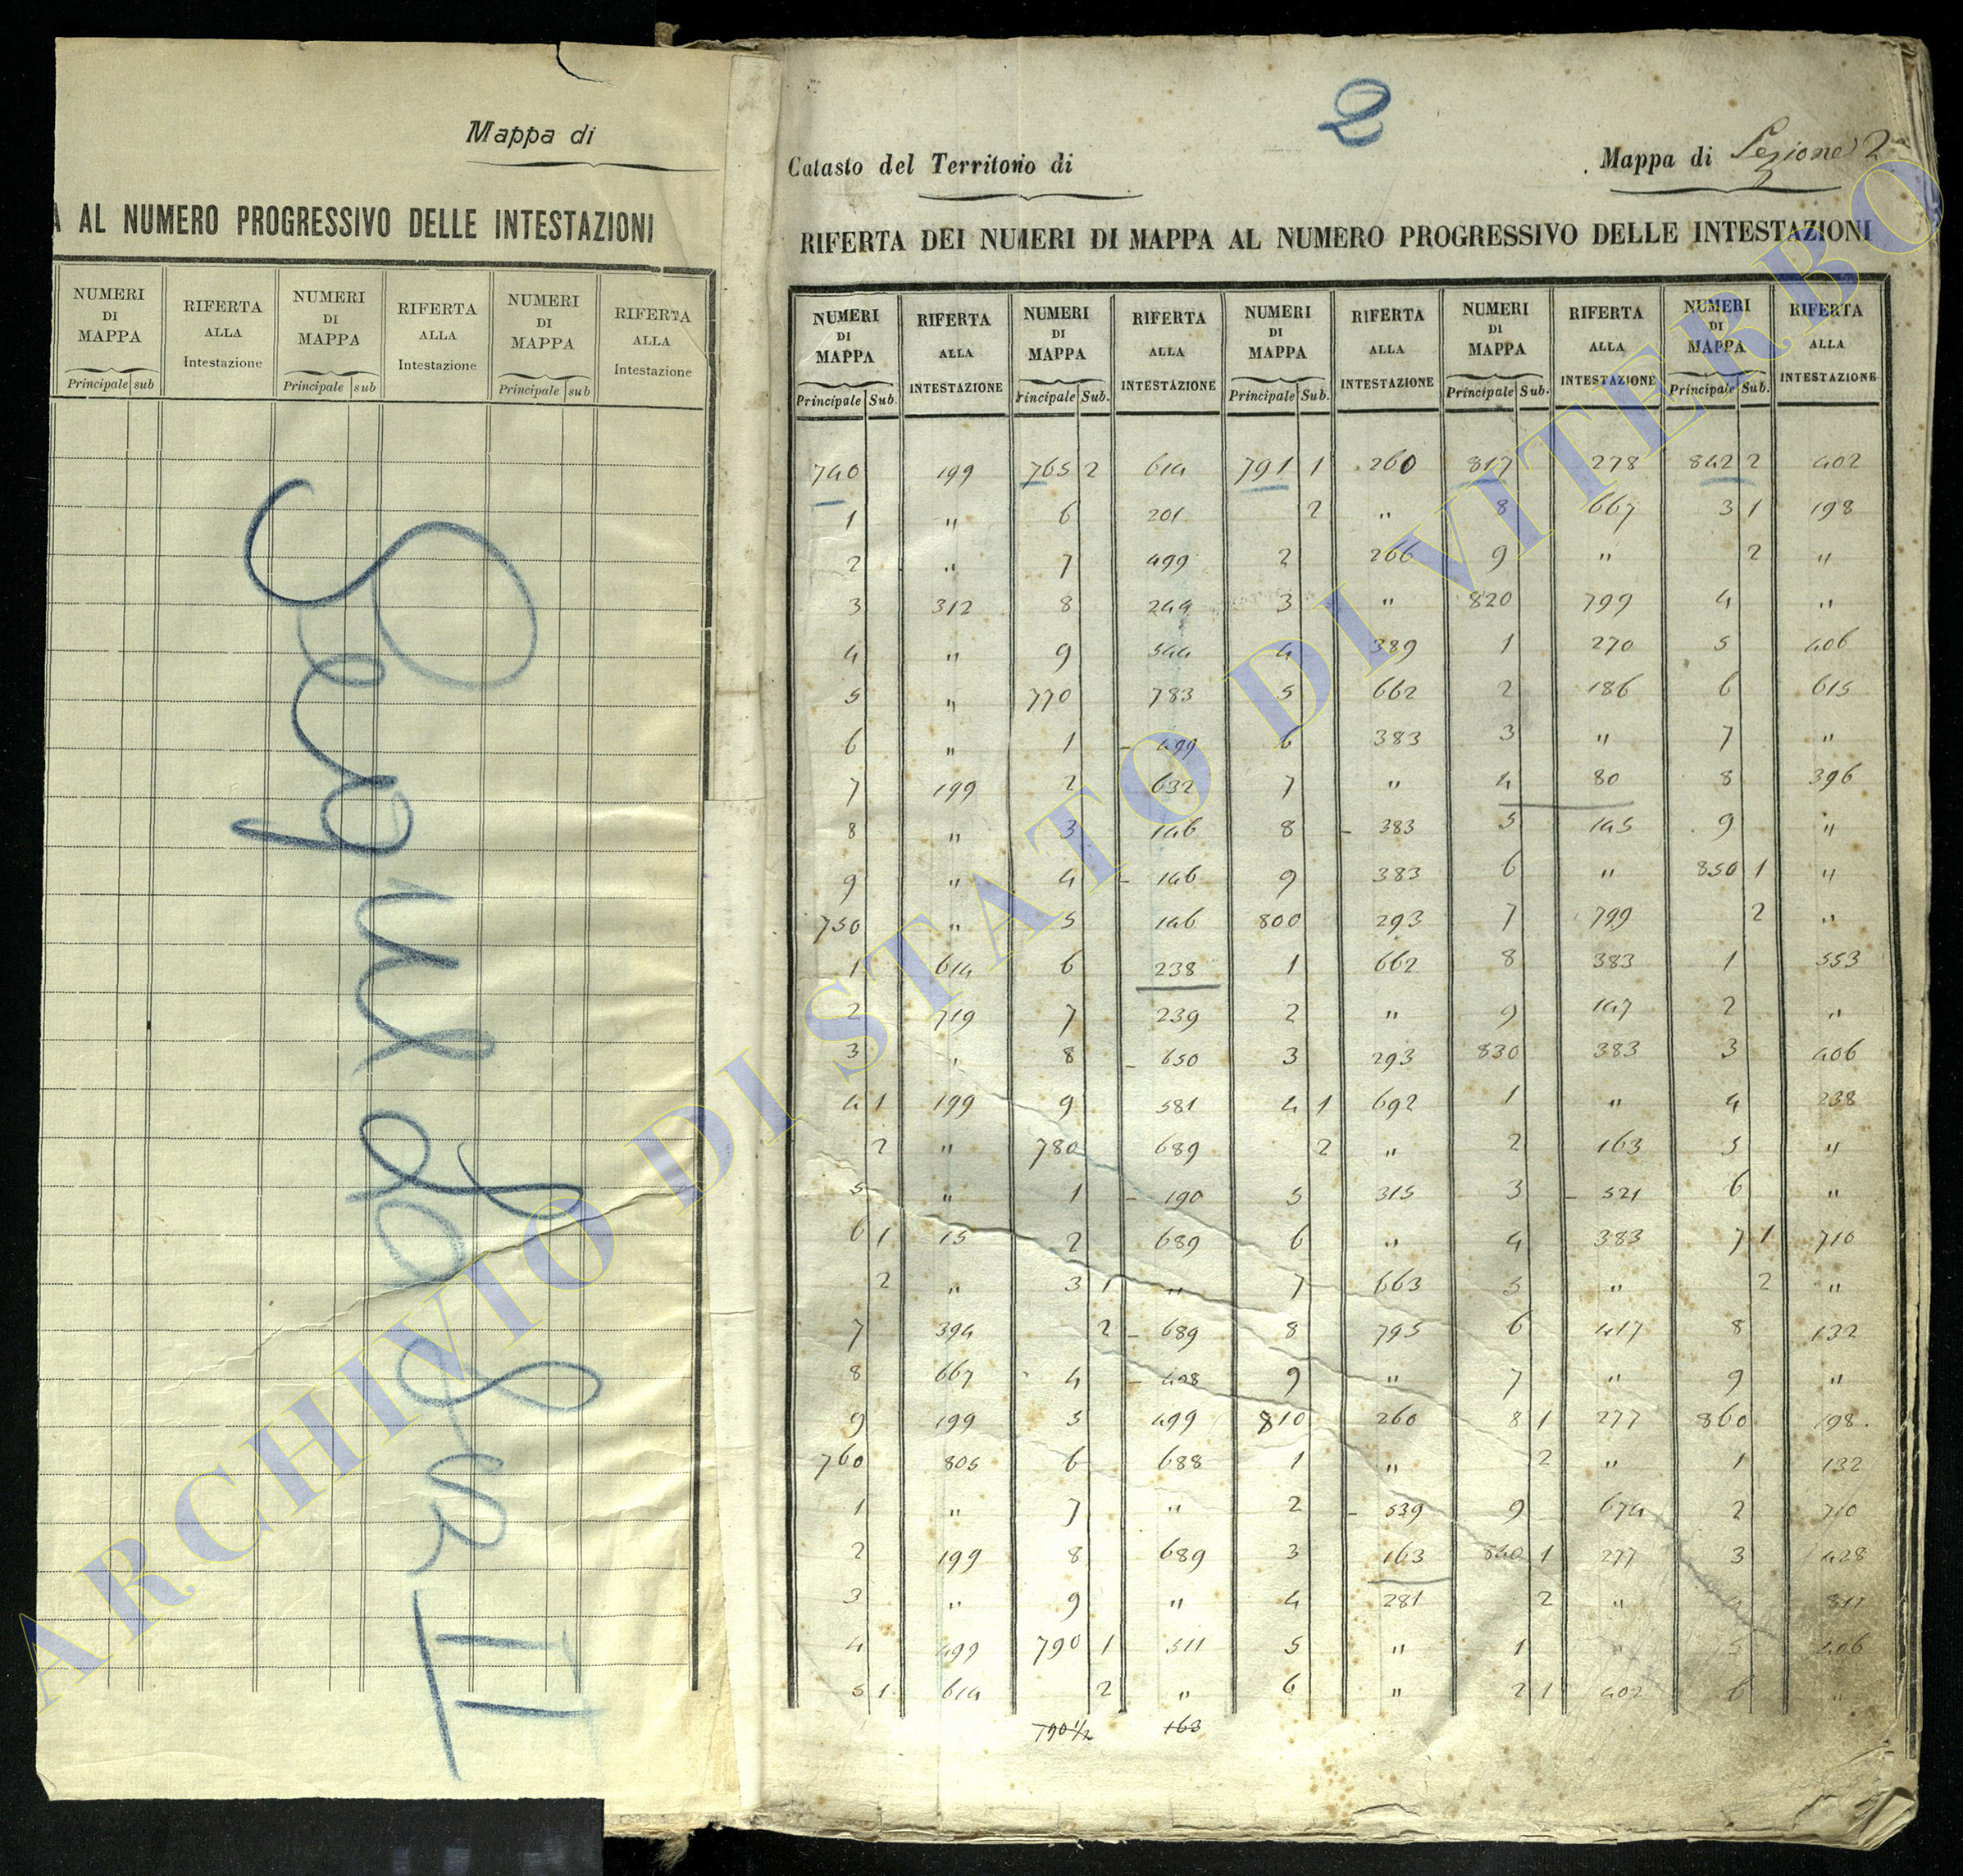 Mappa di
AL NUMERO PROGRESSIVO DELLE INTESTAZIONI
NUMERI DI MAPPA RIFERTA ALLA Intestazione NUMERI DI MAPPA RIFERTA ALLA Intestazione NUMERI DI MAPPA RIFERTA ALLA Intestazione
Principale sub Principale sub Principale sub
2
Catasto del Territorio di
Mappa di Sezione 2
RIFERTA DEI NUMERI DI MAPPA AL NUMERO PROGRESSIVO DELLE INTESTAZIONI
NUMERI DI MAPPA RIFERTA ALLA INTESTAZIONE NUMERI DI MAPPA RIFERTA ALLA INTESTAZIONE NUMERI DI MAPPA RIFERTA ALLA INTESTAZIONE NUMERI DI MAPPA RIFERTA ALLA INTESTAZIONE NUMERI DI MAPPA RIFERTA ALLA INTESTAZIONE
Principale Sub. Principale Sub. Principale Sub. Principale Sub. Principale Sub.
740 199 765 2 614 791 1 260 817 278 842 2 402
1 " 6 201 2 " 8 667 3 1 198
2 " 7 499 2 266 9 " 2 "
3 312 8 244 3 " 820 799 4 "
4 " 9 544 4 389 1 270 5 406
5 " 770 783 5 662 2 186 6 615
6 " 1 - 499 6 383 3 " 7 "
7 199 2 632 7 " 4 80 8 396
8 " 3 146 8 - 383 5 145 9 "
9 " 4 - 146 9 383 6 " 850 1 "
750 " 5 146 800 293 7 799 2 "
1 614 6 238 1 662 8 383 1 553
2 719 7 239 2 " 9 147 2 "
3 " 8 - 650 3 293 830 383 3 406
4 1 199 9 581 4 1 692 1 " 4 238
2 " 780 689 2 " 2 163 5 "
5 " 1 - 190 5 315 3 - 521 6 "
6 1 15 2 689 6 " 4 383 7 1 710
2 " 3 1 " 7 663 5 " 2 "
7 394 2 - 689 8 795 6 417 8 132
8 667 4 - 408 9 " 7 " 9 "
9 199 5 499 810 260 8 1 277 860 198.
760 805 6 688 1 " 2 " 1 132
1 " 7 " 2 - 539 9 674 2 710
2 199 8 689 3 163 840 1 277 3 428
3 " 9 " 4 281 2 " 4 811
4 499 790 1 511 5 " 1 " 5 406
5 1 614 2 " 6 " 2 1 402 6 "
790 1/2 163
ARCHIVIO DI STATO DI VITERBO